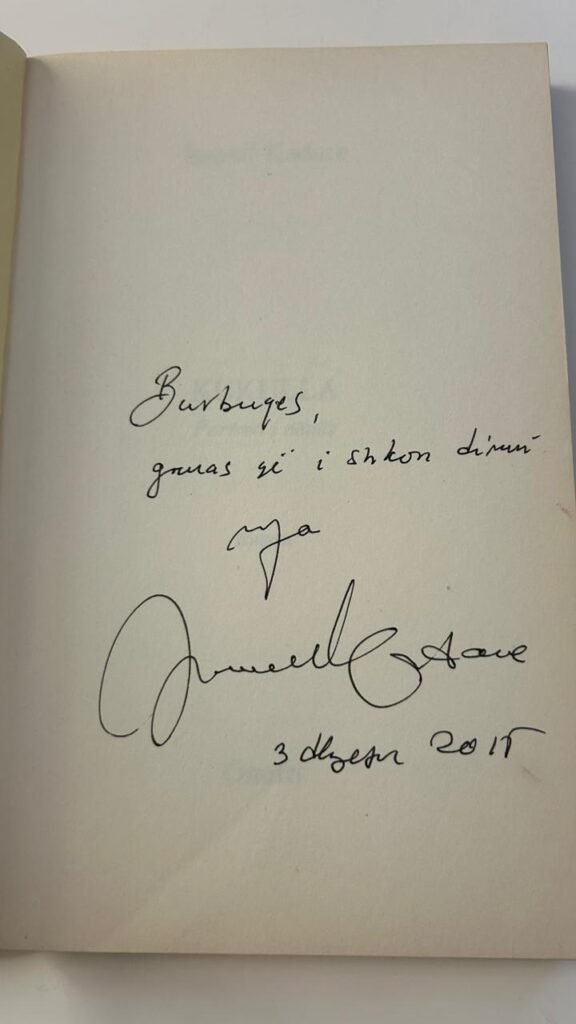 Burbuqes,
gruas që i shkon dimri
nga
Ismail Kadare
3 dhjetor 2015